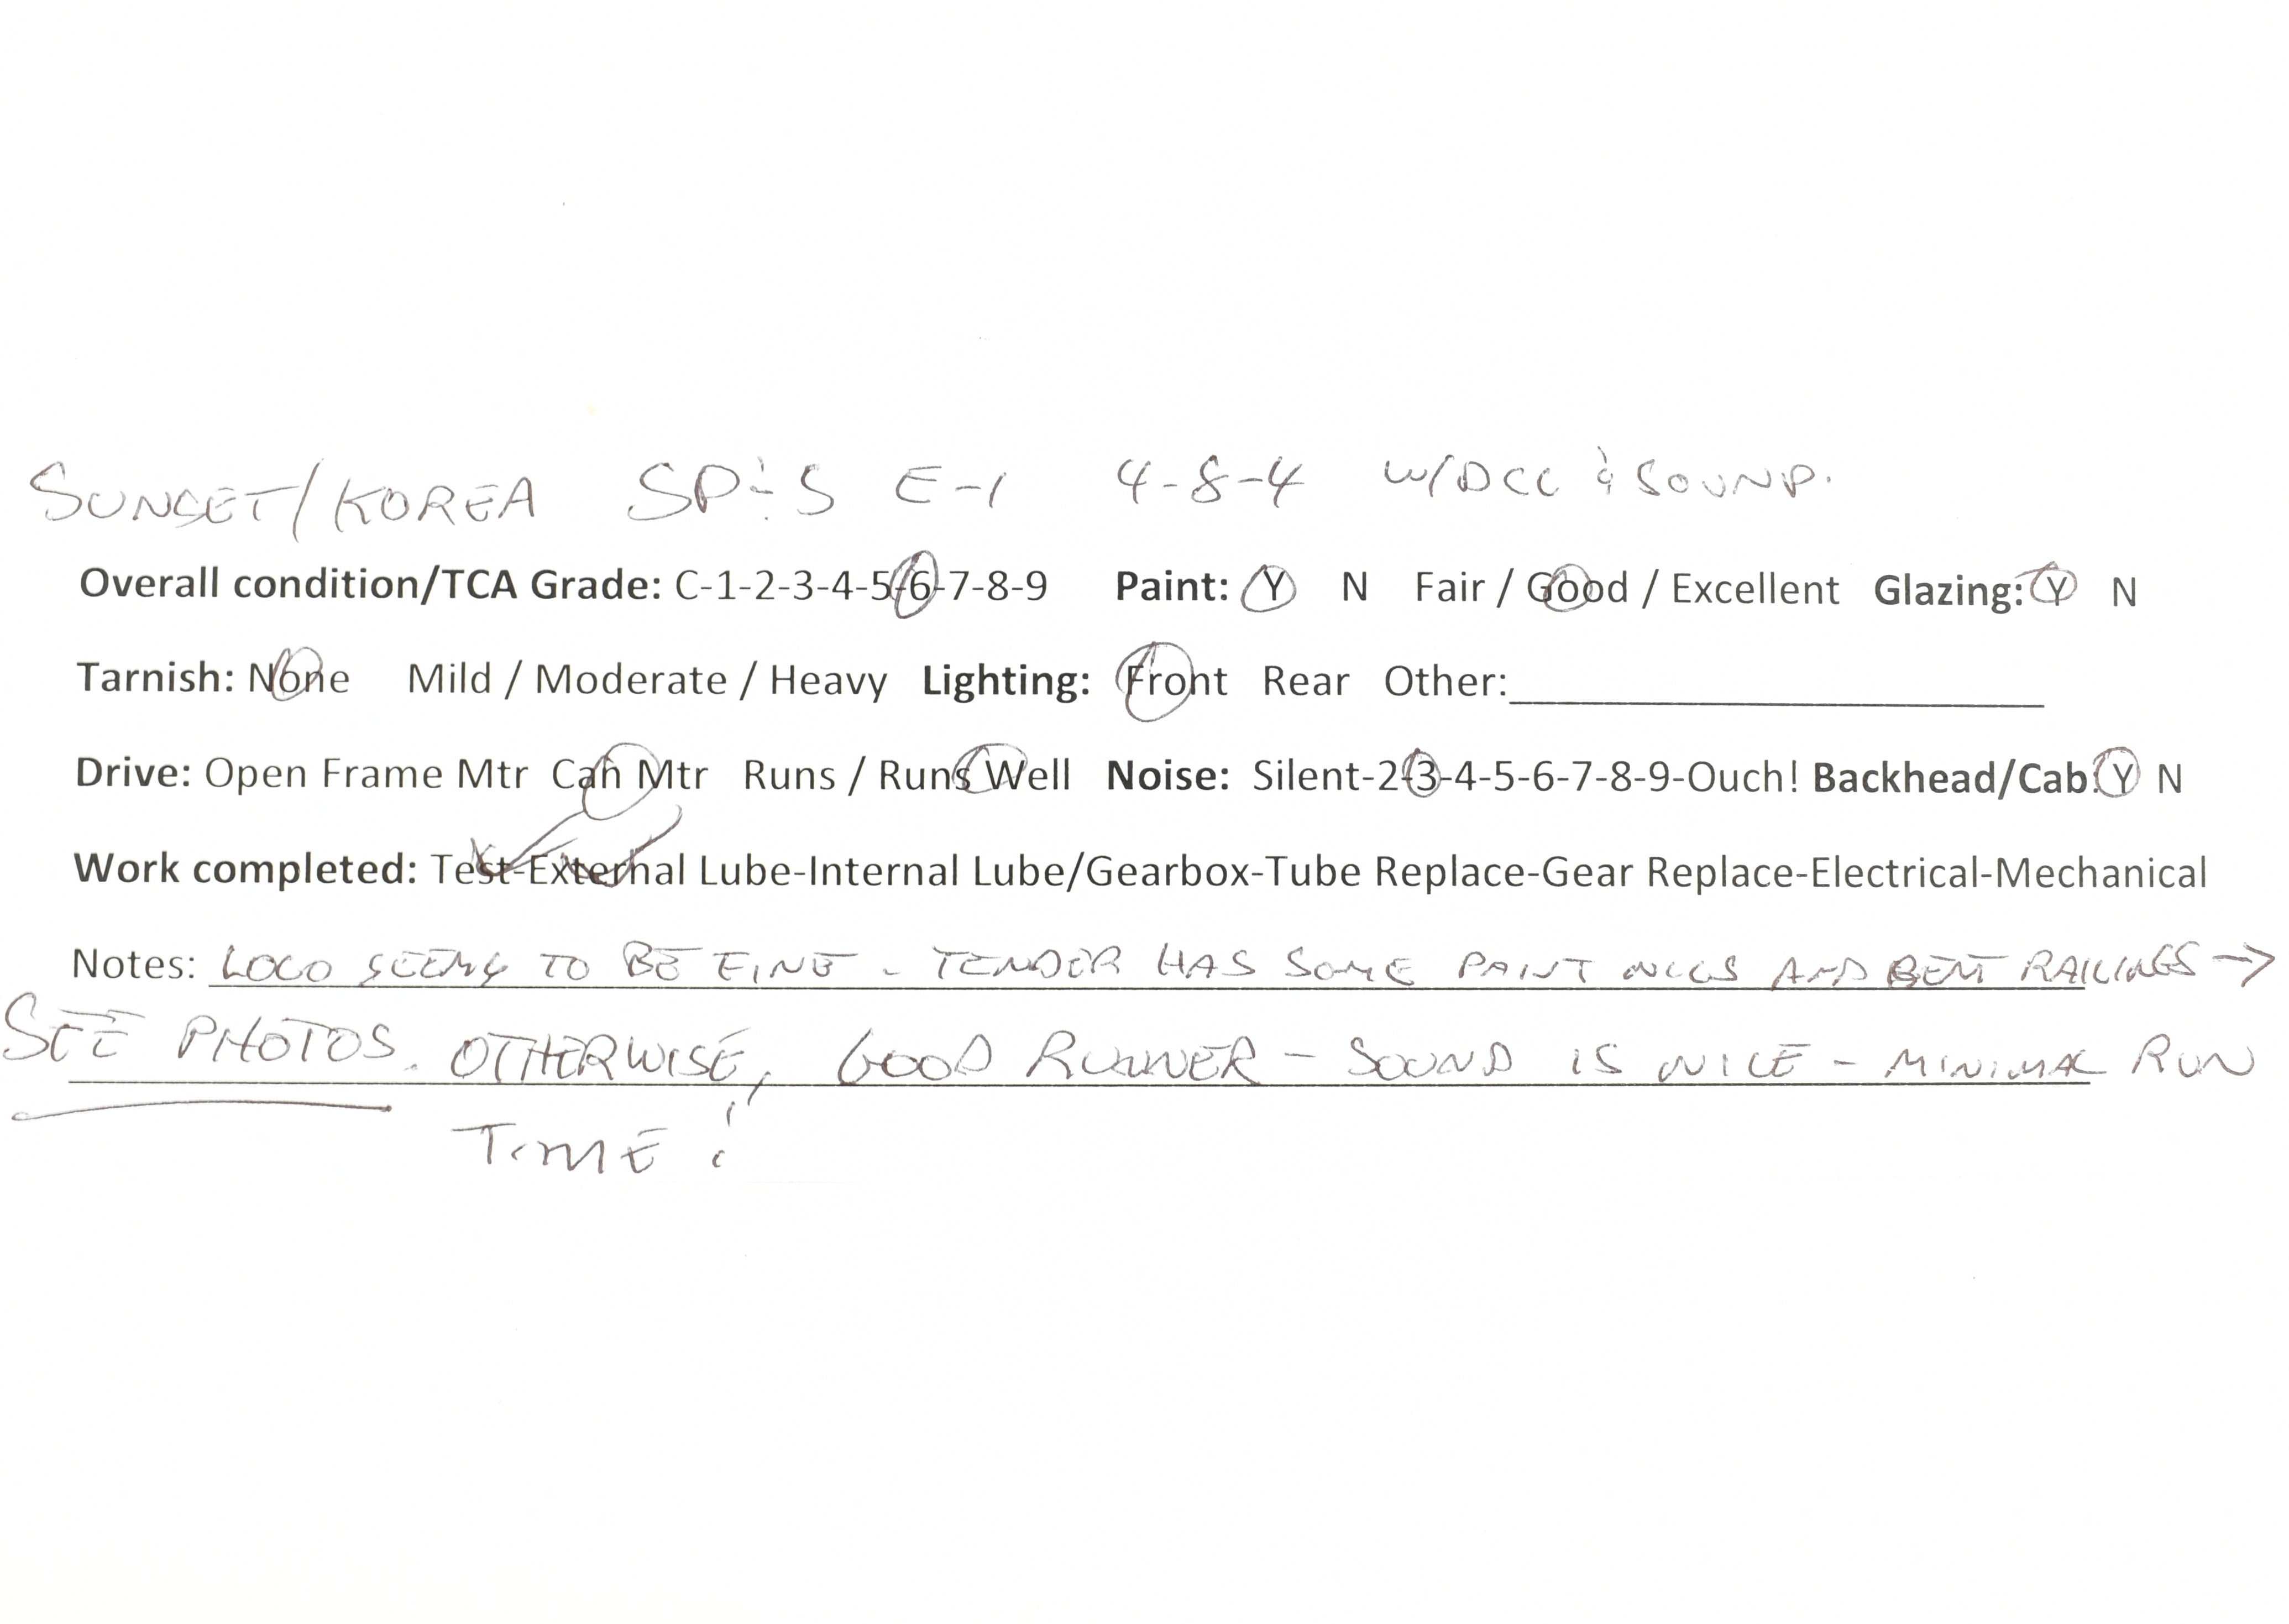 SUNSET/KOREA SP&S E-1 4-8-4 W/DCC & SOUND.
Overall condition/TCA Grade: C-1-2-3-4-5-6-7-8-9 Paint: Y N Fair / Good / Excellent Glazing: Y N
Tarnish: None Mild / Moderate / Heavy Lighting: Front Rear Other:
Drive: Open Frame Mtr Can Mtr Runs / Runs Well Noise: Silent-2-3-4-5-6-7-8-9-Ouch! Backhead/Cab: Y N
Work completed: Test-External Lube-Internal Lube/Gearbox-Tube Replace-Gear Replace-Electrical-Mechanical
Notes: LOCO SEEMS TO BE FINE - TENDER HAS SOME PAINT NICKS AND BENT RAILINGS →
SEE PHOTOS. OTHERWISE, GOOD RUNNER - SOUND IS NICE - MINIMAL RUN
TIME!